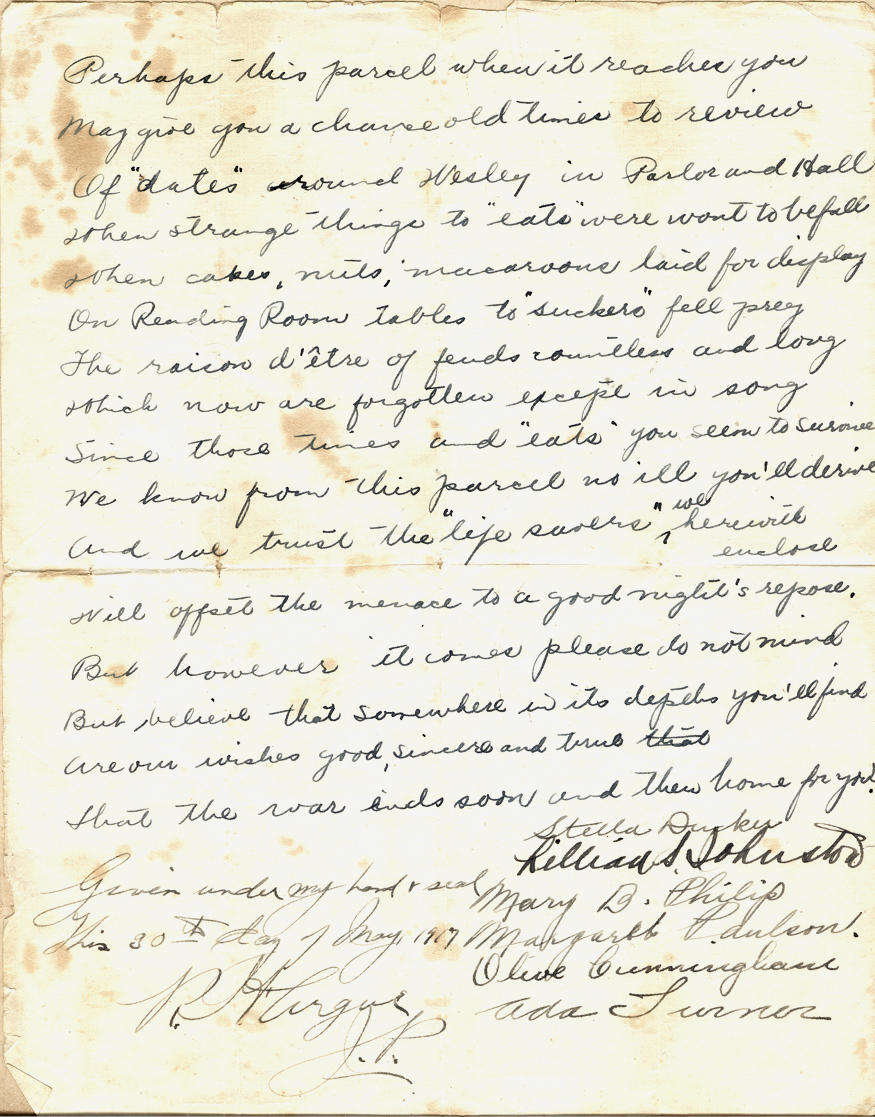 Perhaps this parcel when it reaches you
May give you a chance old times to review
Of "dates" around Wesley in Parlor and Hall
When strange things to "eats" were wont to befall
When cakes, nuts, macaroons laid for display
On Reading Room tables to "suckers" fell prey
The raison d'être of feuds countless and long
Which now are forgotten except in song
Since those times and "eats" you seem to survive
We know from this parcel no ill you'll derive
And we trust the "life savers" we herewith
enclose
Will offset the menace to a good night's repose.
But however it comes please do not mind
But believe that somewhere in its depths you'll find
Are our wishes good, sincere and true that
That the war ends soon and then home for you.
Stella
Lillian S. Johnston
Given under my hand & seal
Mary B. Philip
This 30th day of May, 1917
Margaret Paulson.
Olive Cunningham
Ada Turner
J.P.